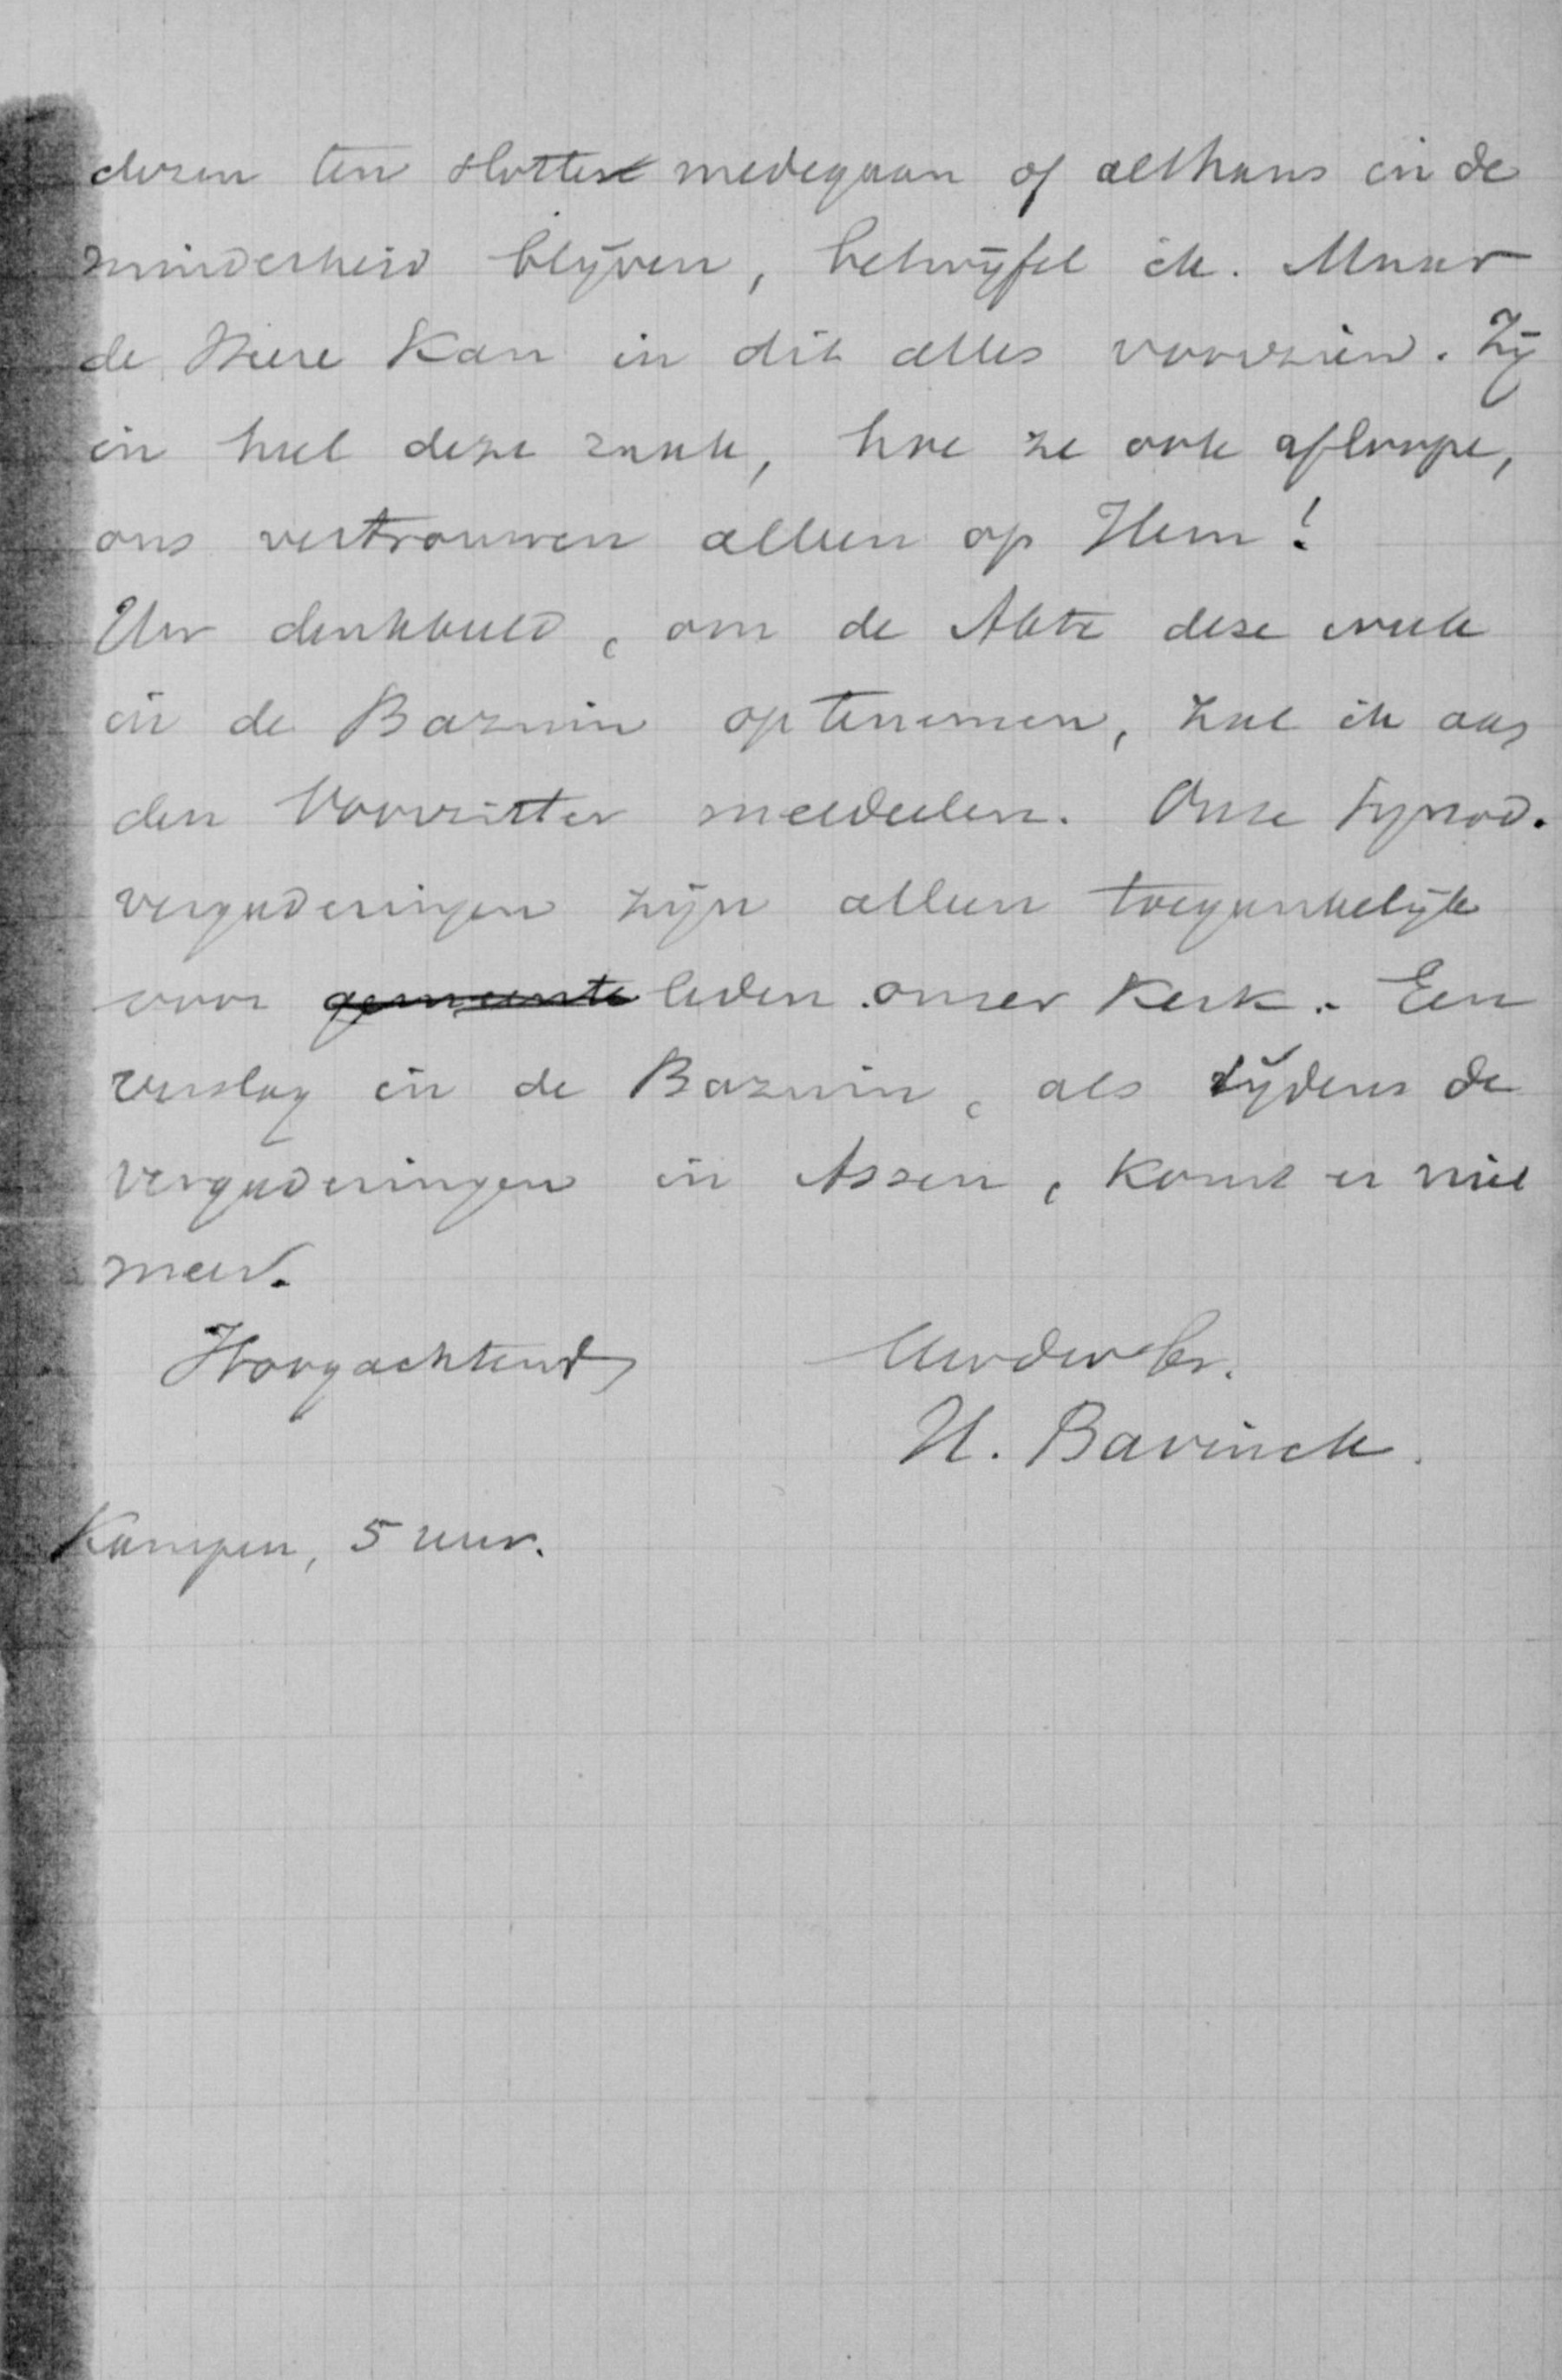 dezen ten slotte medegaan of althans in de
minderheid blijven, betwijfel ik. Maar
de Heere kan in dit alles voorzien. Zij
in heel deze zaak, hoe ze ook afloope,
ons vertrouwen alleen op Hem!
Uw denkbeeld, om de Akte deze week
in de Bazuin optenemen, zal ik aan
den Voorzitter meedeelen. Onze Synod.
vergaderingen zijn alleen toegankelijk
voor gemeente leden onzer Kerk. Een
verslag in de Bazuin, als tijdens de
vergaderingen in Assen, komt er niet
meer.
Hoogachtend
Uw dw br.
H. Bavinck.
Kampen, 5 uur.